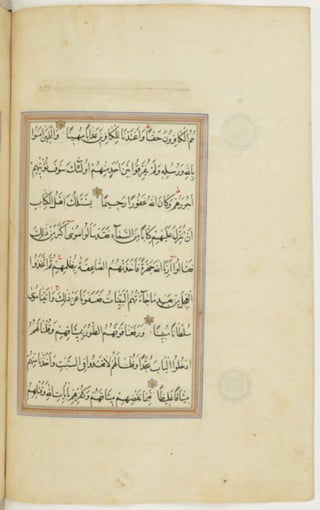 هم الكافرون حقا واعتدنا للكافرين عذابا مهينا والذين امنوا
بالله ورسله ولم يفرقوا بين احد منهم اولئك سوف نؤتيهم
اجورهم وكان الله غفورا رحيما يسئلك اهل الكتاب
ان تنزل عليهم كتابا من السماء فقد سالوا موسى اكبر من ذلك
فقالوا ارنا الله جهرة فاخذتهم الصاعقة بظلمهم ثم اتخذوا
العجل من بعد ما جاءتهم البينات فعفونا عن ذلك واتينا موسى
سلطانا مبينا ورفعنا فوقهم الطور بميثاقهم وقلنا لهم
ادخلوا الباب سجدا وقلنا لهم لا تعدوا في السبت واخذنا منهم
ميثاقا غليظا فبما نقضهم ميثاقهم وكفرهم بايات الله وقتلهم